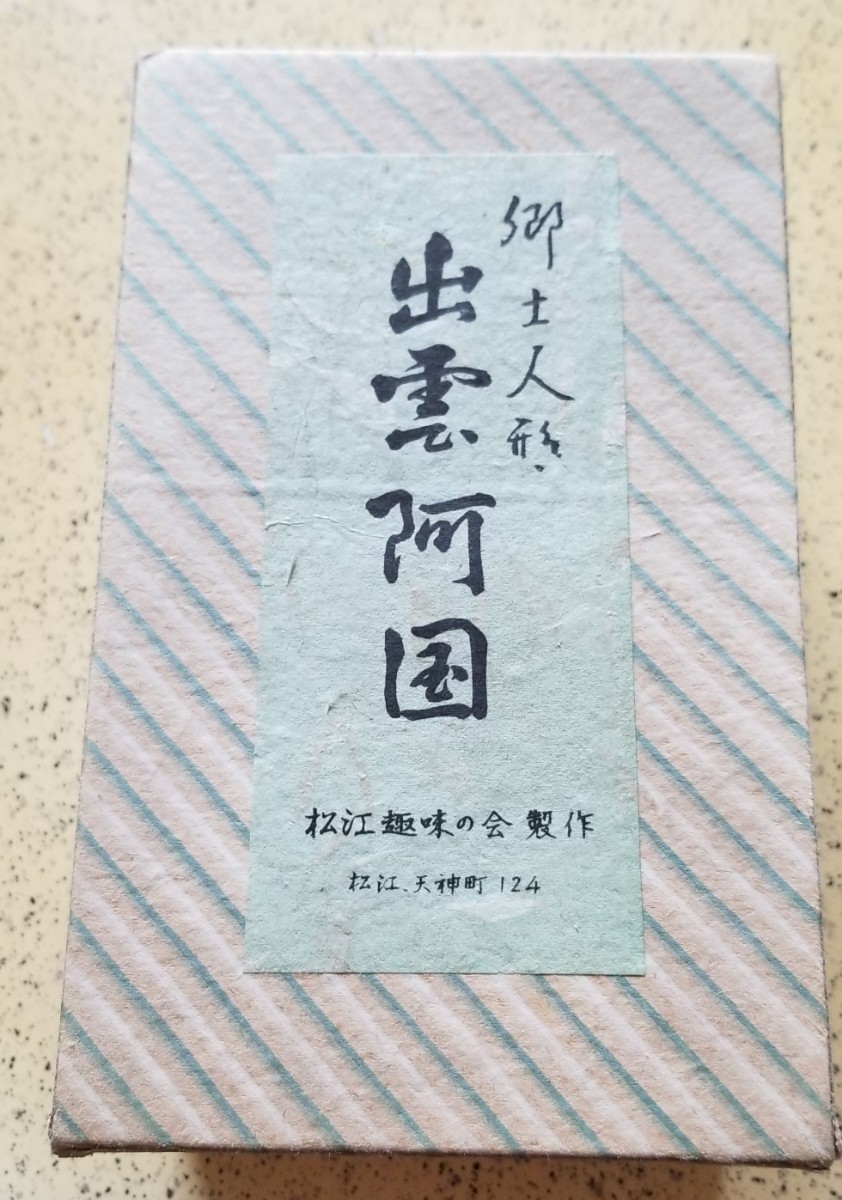 郷土人形
出雲阿国
松江趣味の会製作
松江、天神町124